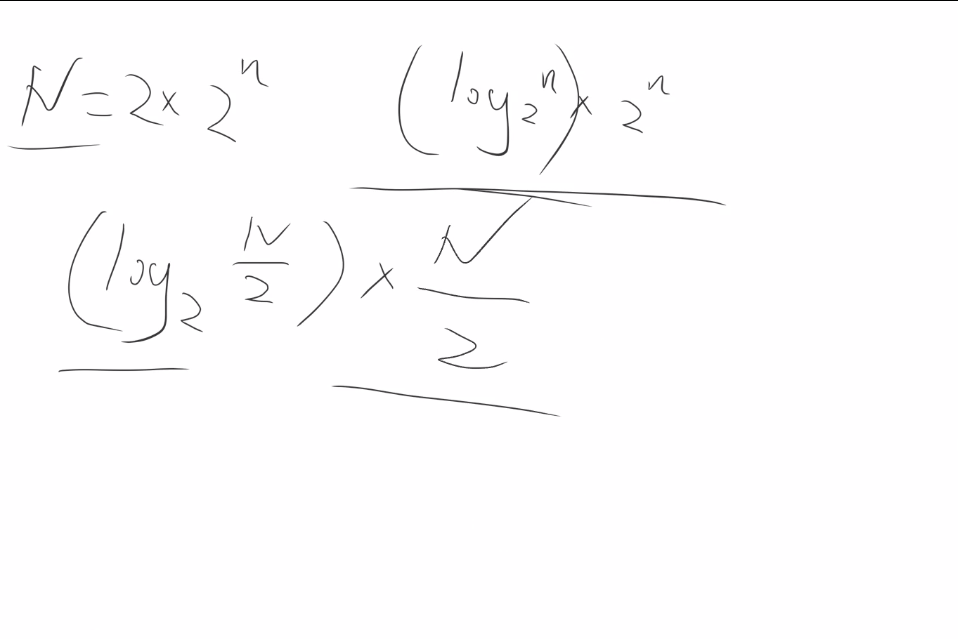 N = 2 × 2ⁿ (log 2ⁿ) × 2ⁿ
(log₂ N/2) × N/2